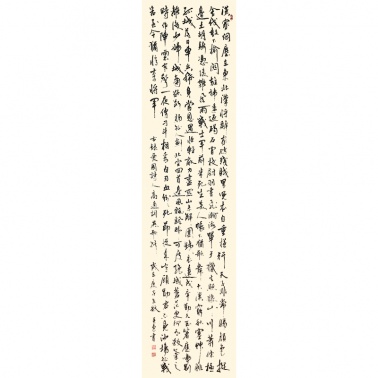 漢家煙塵在東北漢將辭家破殘賊男兒本自重橫行天子非常賜顏色摐
金伐鼓下榆關旌旆逶迤碣石間校尉羽書飛瀚海單于獵火照狼山山川蕭條極
邊土胡騎憑陵雜風雨戰士軍前半死生美人帳下猶歌舞大漠窮秋塞草腓
孤城落日鬥兵稀身當恩遇常輕敵力盡關山未解圍鐵衣遠戍辛勤久玉箸應啼別
離後少婦城南欲斷腸征人薊北空回首邊庭飄颻那可度絕域蒼茫更何有殺氣三
時作陣雲寒聲一夜傳刁斗相看白刃血紛紛死節從來豈顧勳君不見沙場征戰
苦至今猶憶李將軍
愛國詩人高適詞燕歌行
書